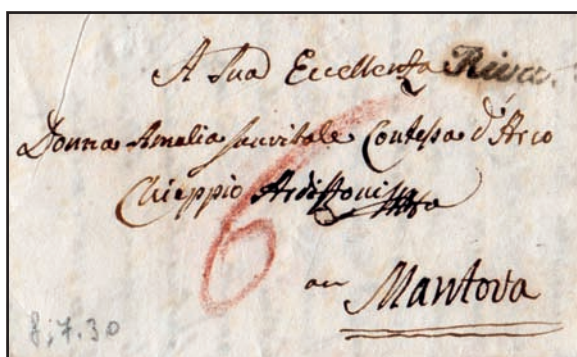 A Sua Eccellenza Riva.
Donna Amalia Sanvitale Contessa d'Arco
Chieppio
6
Mantova
8.7.30